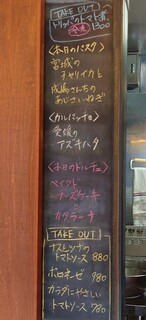 TAKE OUT!
トリッパのトマト煮
1300
〈本日のパスタ〉
宮城の
チャリイカと
成嶋さんちの
あじさいねぎ
〈カルパッチョ〉
愛媛の
アズキハタ
〈本日のドルチェ〉
ベイクド
チーズケーキ
と
カタラーナ
TAKE OUT!
ナスとツナの
トマトソース 880
ボロネーゼ 980
カラダにやさしい
トマトソース 780